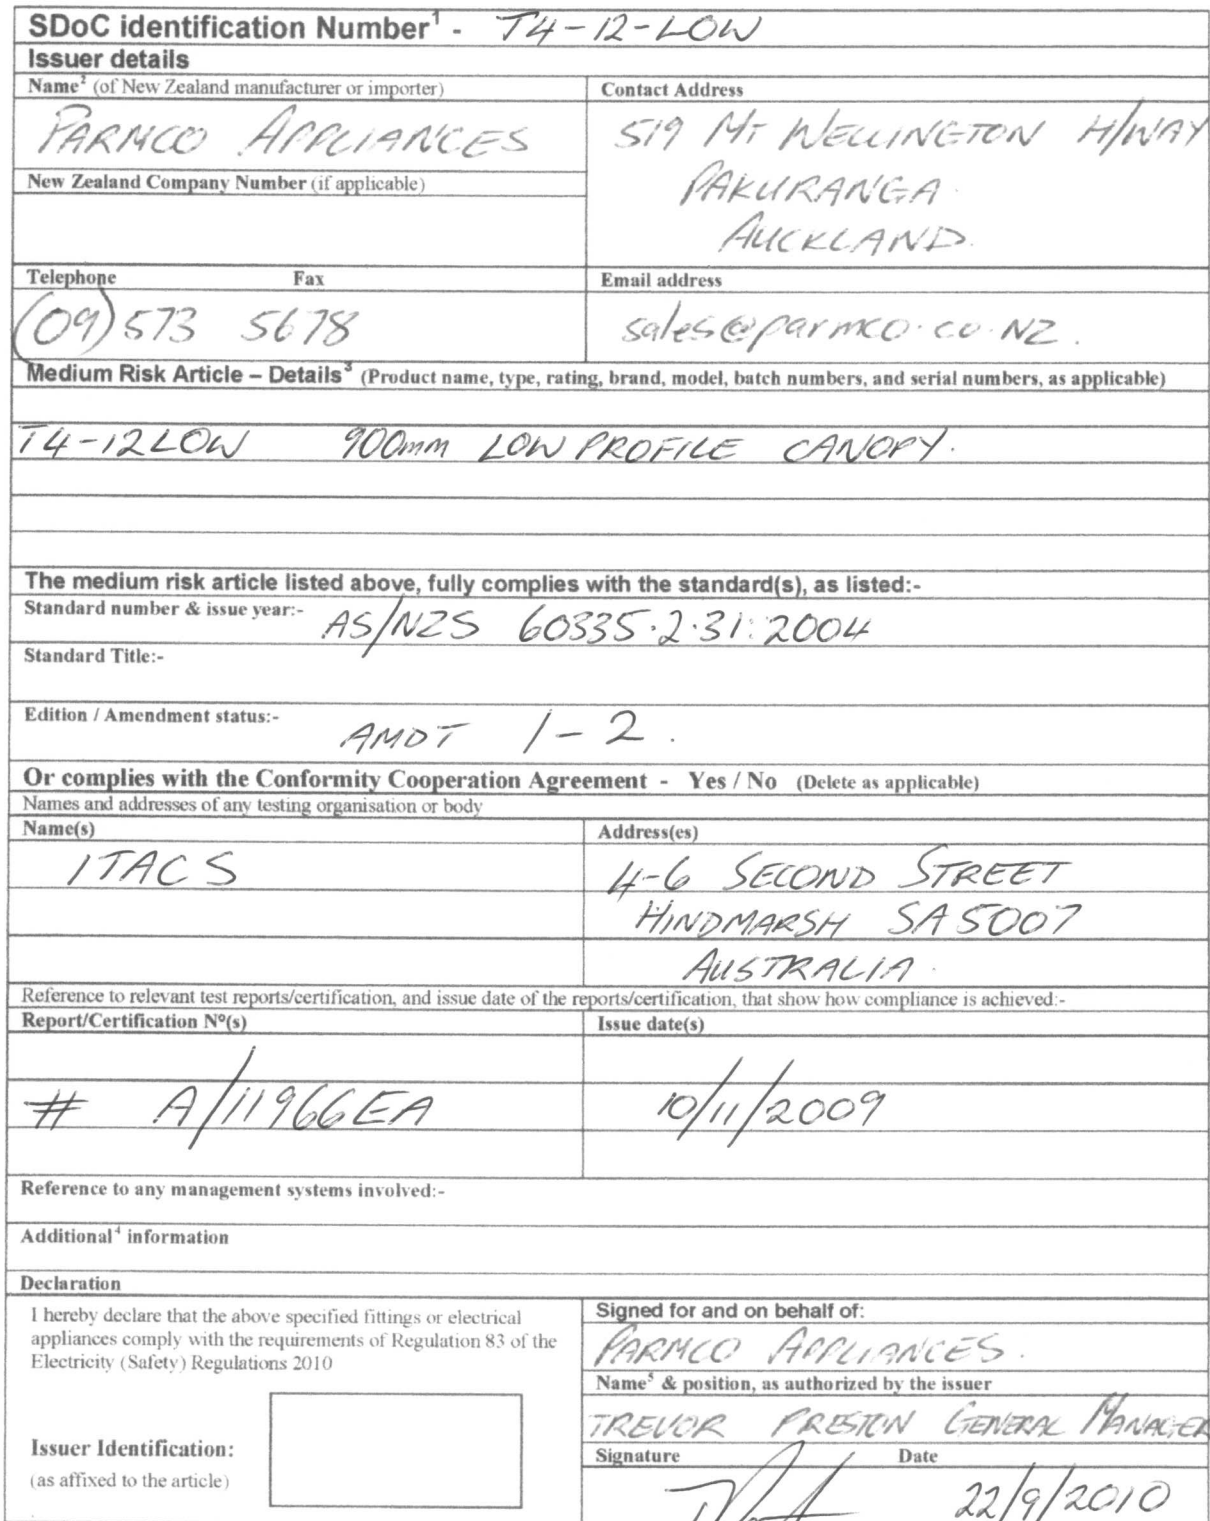 SDoC identification Number¹ - T4-12-LOW
Issuer details
Name² (of New Zealand manufacturer or importer)
PARMCO APPLIANCES
Contact Address
519 MT WELLINGTON H/WAY
PAKURANGA.
AUCKLAND.
New Zealand Company Number (if applicable)
Telephone Fax
(09) 573 5678
Email address
sales@parmco.co.NZ.
Medium Risk Article – Details³ (Product name, type, rating, brand, model, batch numbers, and serial numbers, as applicable)
T4-12LOW 900mm LOW PROFILE CANOPY.
The medium risk article listed above, fully complies with the standard(s), as listed:-
Standard number & issue year:- AS/NZS 60335.2.31:2004
Standard Title:-
Edition / Amendment status:- AMDT 1-2.
Or complies with the Conformity Cooperation Agreement - Yes / No (Delete as applicable)
Names and addresses of any testing organisation or body
Name(s)
ITACS
Address(es)
4-6 SECOND STREET
HINDMARSH SA 5007
AUSTRALIA.
Reference to relevant test reports/certification, and issue date of the reports/certification, that show how compliance is achieved:-
Report/Certification Nº(s)
# A/11966EA
Issue date(s)
10/11/2009
Reference to any management systems involved:-
Additional⁴ information
Declaration
I hereby declare that the above specified fittings or electrical
appliances comply with the requirements of Regulation 83 of the
Electricity (Safety) Regulations 2010
Issuer Identification:
(as affixed to the article)
Signed for and on behalf of:
PARMCO APPLIANCES.
Name⁵ & position, as authorized by the issuer
TREVOR PRESTON GENERAL MANAGER
Signature Date
22/9/2010